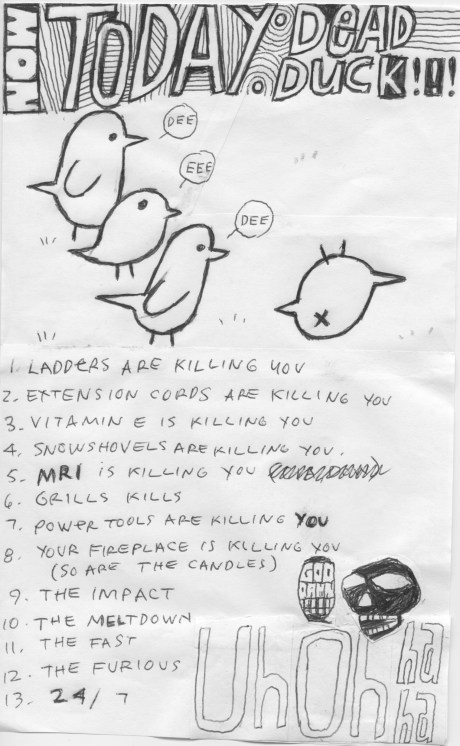 NOW TODAY: DEAD
DUCK!!!
DEE
EEE
DEE
1. LADDERS ARE KILLING YOU
2. EXTENSION CORDS ARE KILLING YOU
3. VITAMIN E IS KILLING YOU
4. SNOWSHOVELS ARE KILLING YOU.
5. MRI is KILLING YOU
6. GRILLS KILLS
7. POWER TOOLS ARE KILLING YOU
8. YOUR FIREPLACE IS KILLING YOU
(SO ARE THE CANDLES)
9. THE IMPACT
10. THE MELTDOWN
11. THE FAST
12. THE FURIOUS
13. 24/7
Uh Oh ha
ha